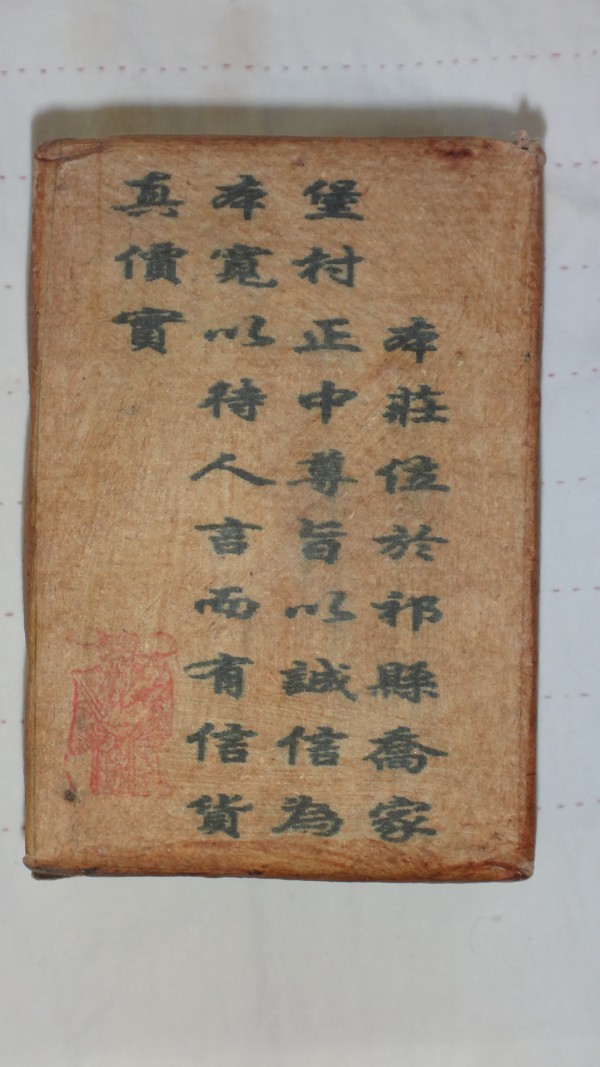 本莊位於祁縣喬家
堡村正中尊旨以誠信為
本寬以待人言而有信貨
真價實